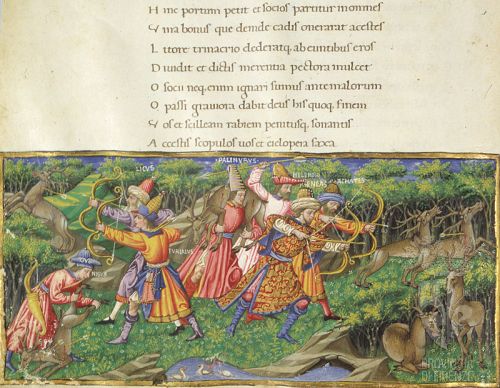 H inc portum petit et socios partitur in omnes
V ina bonus que deinde cadis onerarat acestes
L itore trinacrio dederatq. abeuntibus eros
D iuidit et dictis merentia pectora mulcet
O socii neq. enim ignari sumus ante malorum
O passi grauiora dabit deus his quoq. finem
V os et scilleam rabiem penitusq. sonantis
A ccestis scopulos uos et ciclopea saxa
PALINVRVS
LICVS
ENEAS
ACHATES
NISVS